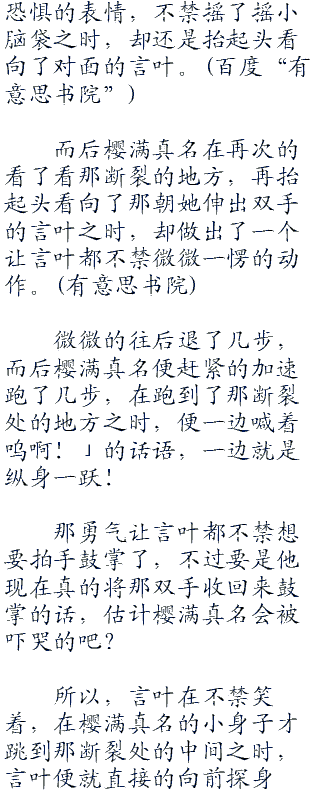 恐惧的表情，不禁摇了摇小
脑袋之时，却还是抬起头看
向了对面的言叶。(百度“有
意思书院”)
而后樱满真名在再次的
看了看那断裂的地方，再抬
起头看向了那朝她伸出双手
的言叶之时，却做出了一个
让言叶都不禁微微一愣的动
作。(有意思书院)
微微的往后退了几步，
而后樱满真名便赶紧的加速
跑了几步，在跑到了那断裂
处的地方之时，便一边喊着
呜啊！」的话语，一边就是
纵身一跃！
那勇气让言叶都不禁想
要拍手鼓掌了，不过要是他
现在真的将那双手收回来鼓
掌的话，估计樱满真名会被
吓哭的吧？
所以，言叶在不禁笑
着，在樱满真名的小身子才
跳到那断裂处的中间之时，
言叶便就直接的向前探身